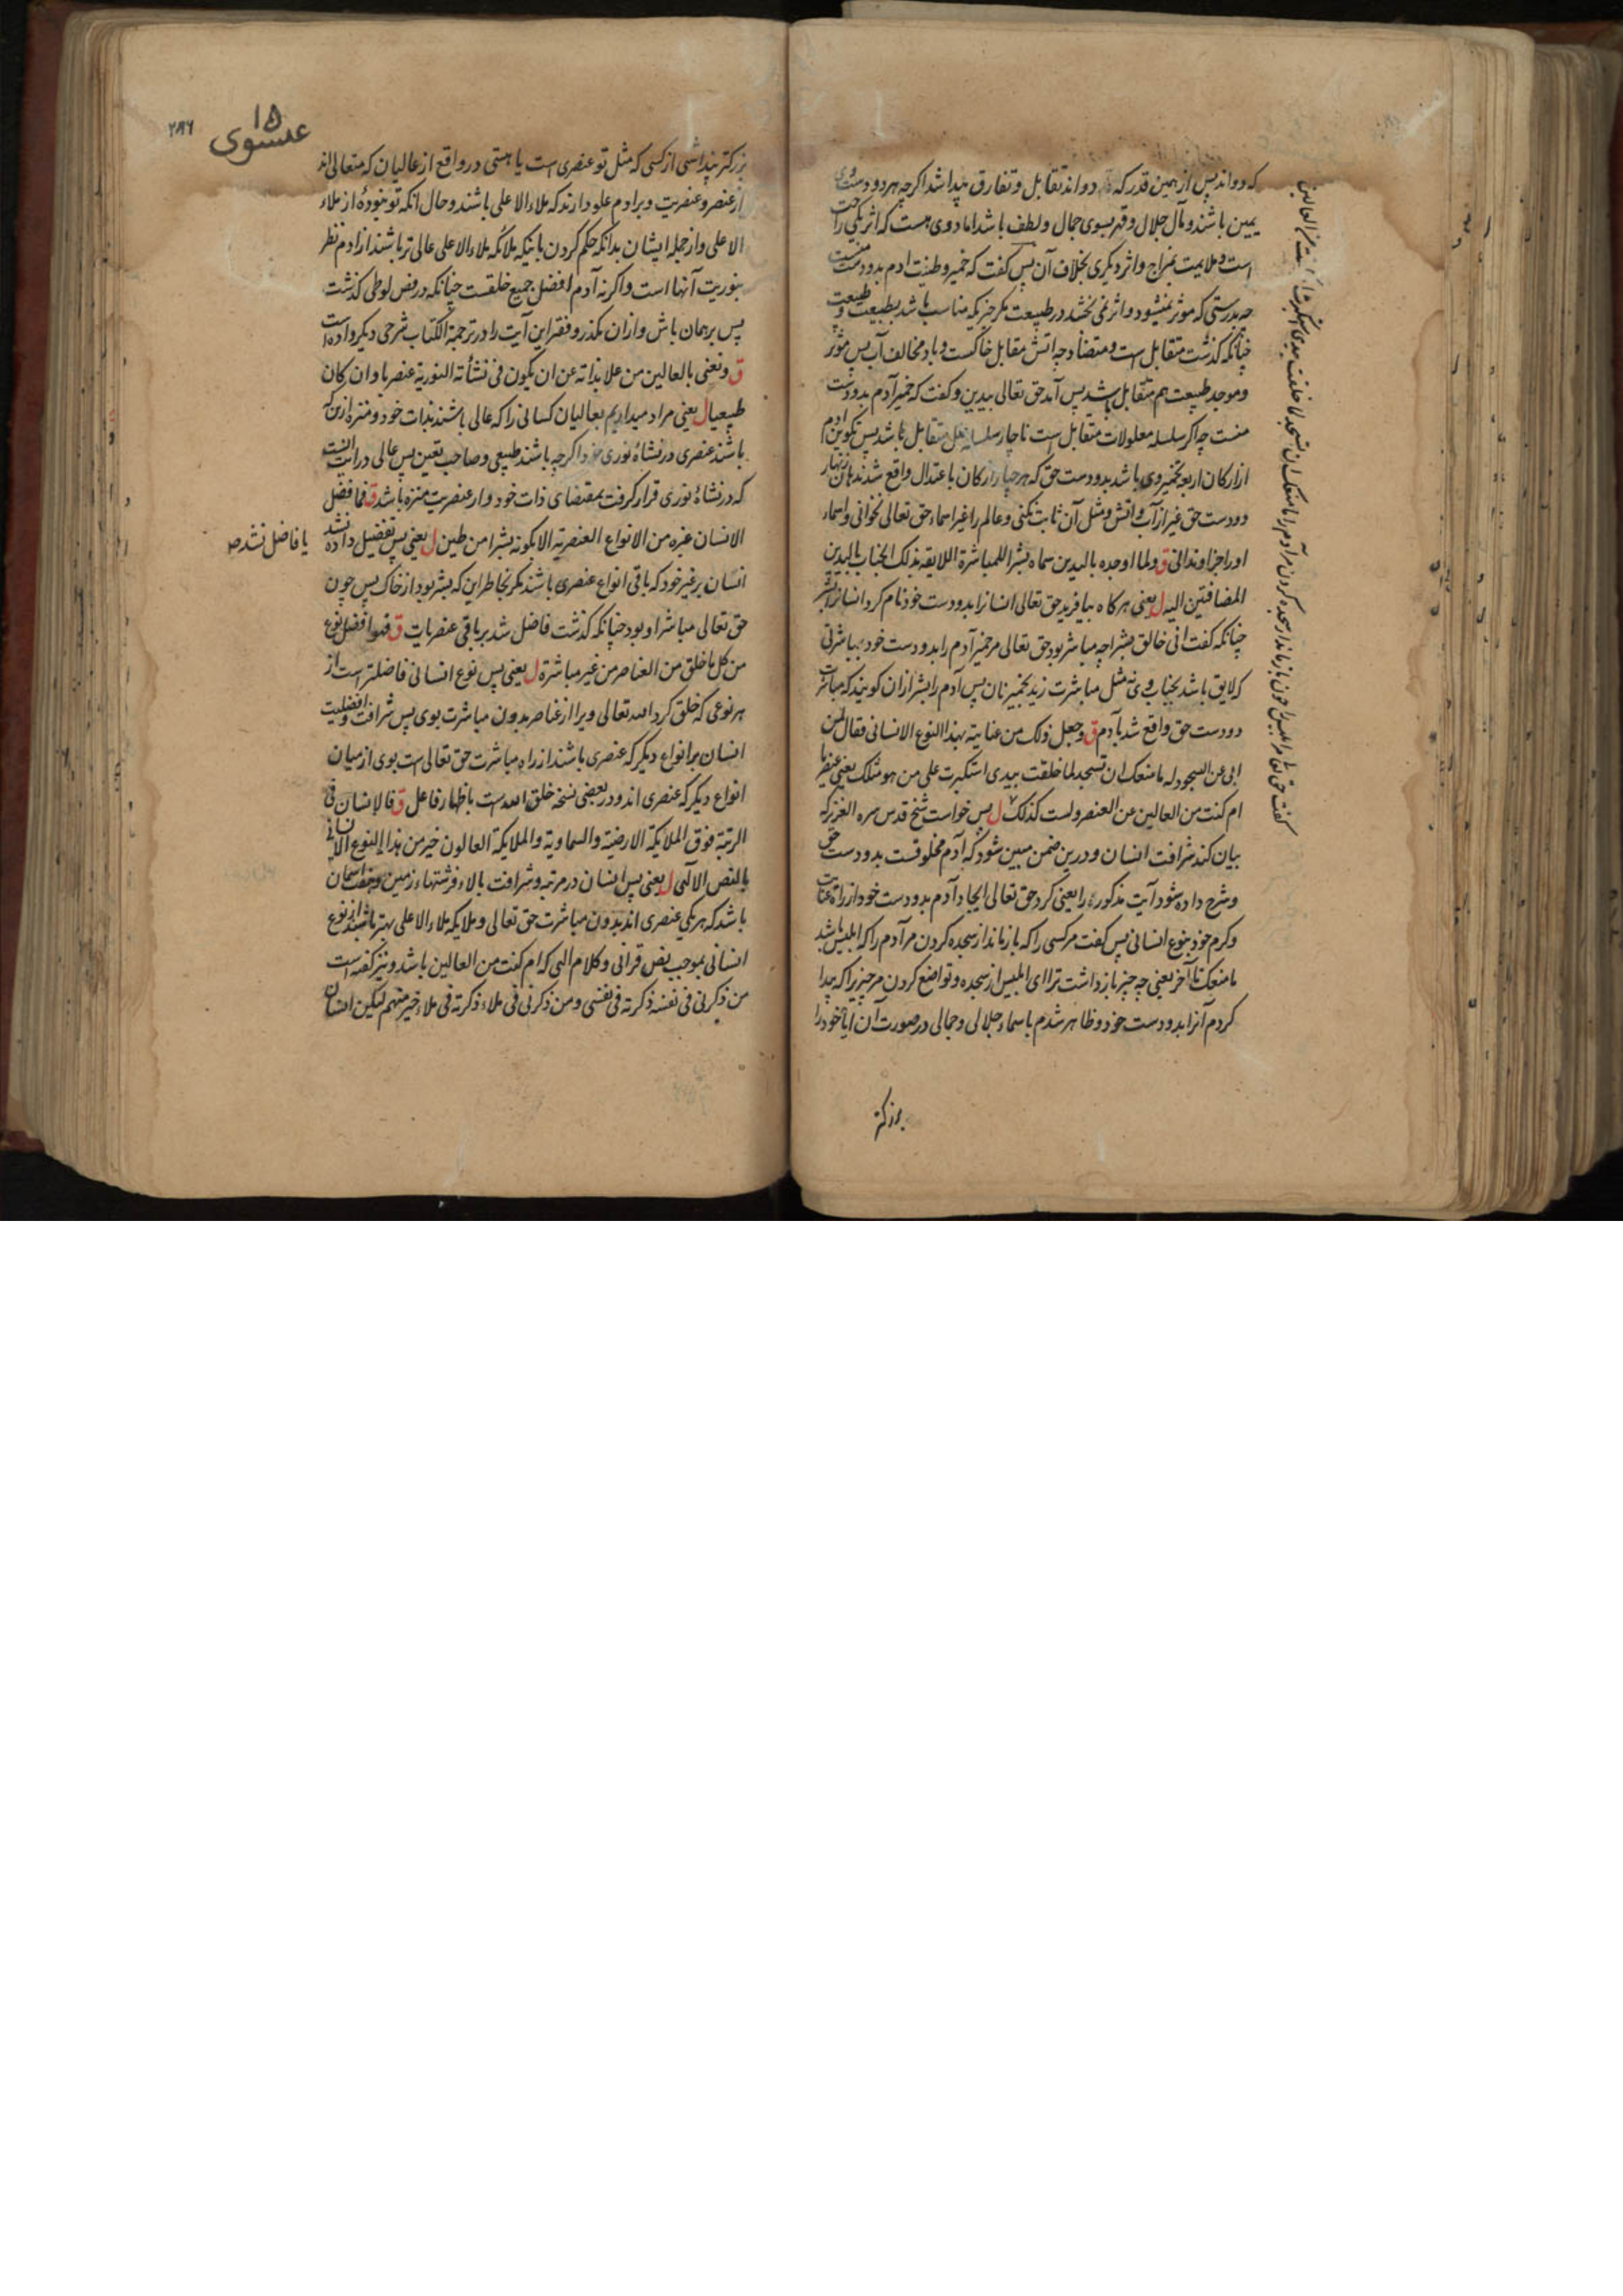 که دواند پس از همین قدر که دواند تقابل و تفارق پیدا شد اگرچه هر دو دست وی
یمین باشند و مآل جلال و قهر بسوی جمال و لطف باشد اما دوی هست که اثر یکی راحت
است و ملایمت بمزاج و اثر دیگری بخلاف آن پس گفت که خمیر و طینت ادم بدو دست منست
چه بدرستی که موثر نمیشود و اثر نمی بخشد در طبیعت مگر چیزیکه مناسب باشد بطبیعت و طبیعت
چنانکه گذشت متقابل است و متضاد چه اتش مقابل خاکست و باد مخالف آب پس موثر
و موجد طبیعت هم متقابل باشد پس آمد حق تعالی بیدین و گفت که خمیر آدم بدو دست
منست چه اگر سلسله معلولات متقابل است ناچار سلسله علل متقابل باشد پس تکوین ادم
از ارکان اربعه بخمیر وی باشد بدو دست حق که هر چهار ارکان باعتدال واقع شدند هان زنهار
دو دست حق غیر از آب و اتش و مثل آن ثابت نکنی و عالم را غیر اسماء حق تعالی نخوانی و اسماء
او را جزا و ندانی ق ولما اوجده بالیدین سماه بشرا للمباشرة اللایقة بذلک الجناب بالیدین
المضافتین الیه ل یعنی هرگاه بیافرید حق تعالی انسانرا بدو دست خود نام کرد انسانرا بشر
چنانکه گفت انی خالق بشرا چه مباشر بود حق تعالی مر خمیر آدم را بدو دست خود بمباشرتی
که لایق باشد بجناب وی نه مثل مباشرت زید بخمیر نان پس آدم را بشر ازان گویند که مباشرت
دو دست حق واقع شد بآدم ق وجعل ذلک من عنایته بهذا النوع الانسانی فقال لمن
ابی عن السجود له ما منعک ان تسجد لما خلقت بیدی استکبرت علی من هو مثلک یعنی عنصریا
ام کنت من العالین عن العنصر ولست کذلک ل پس خواست شیخ قدس سره العزیز که
بیان کند شرافت انسان و درین ضمن مبین شود که آدم مخلوقست بدو دست حق
و شرح داده شود آیت مذکوره را یعنی کرد حق تعالی ایجاد آدم بدو دست خود از راه عنایت
و کرم خود بنوع انسانی پس گفت مر کسی را که باز ماند از سجده کردن مر آدم را که ابلیس باشد
ما منعک تا آخر یعنی چه چیز باز داشت ترا ای ابلیس از سجده و تواضع کردن مر چیزیرا که پیدا
کردم آنرا بدو دست خود و ظاهر شدم باسماء جلالی و جمالی در صورت آن ایا خود را
گفت حق تعالی مر ابلیس را چون باز ماند از سجده کردن مر آدم را ما منعک ان تسجد لما خلقت بیدی استکبرت ام کنت من العالین
بزرگتر
۱۵
عیسوی
۲۸۶
بزرگتر پنداشتی از کسی که مثل تو عنصری است یا هستی در واقع از عالیان که متعالی اند
از عنصر و عنصریت و بر ادم علو دارند که ملاء الاعلی باشند و حال آنکه تو نبودهٔ از ملاء
الاعلی و از جمله ایشان بدانکه حکم کردن باینکه ملائکه ملاء الاعلی عالی تر باشند از ادم نظر
بنوریت آنها است و اگر نه آدم افضل جمیع خلقست چنانکه در فص لوطی گذشت
پس بر همان باش و ازان مگذر و فقیر این آیت را در ترجمة الکتاب شرحی دیگر داده است
ق و نعنی بالعالین من علا بذاته عن ان یکون فی نشأته النوریة عنصریا و ان کان
طبیعیا ل یعنی مراد میداریم بعالیان کسانی را که عالی باشند بذات خود و منزه از ین که
باشند عنصری در نشاهٔ نوری خود اگرچه باشند طبیعی و صاحب تعین پس عالی در آیت آنست
که در نشاهٔ نوری قرار گرفت بمقتضای ذات خود و از عنصریت منزه باشد ق فما فضل
الانسان غیره من الانواع العنصریة الا بکونه بشرا من طین ل یعنی پس تفضیل داده نشد
یا فاضل نشد صح
انسان بر غیر خود که باقی انواع عنصری باشند مگر بخاطر این که بشر بود از خاک پس چون
حق تعالی مباشر او بود چنانکه گذشت فاضل شد بر باقی عنصریات ق فهو افضل نوع
من کل ما خلق من العناصر من غیر مباشرة ل یعنی پس نوع انسانی فاضلتر است از
هر نوعی که خلق کرد الله تعالی ویرا از عناصر بدون مباشرت بوی پس شرافت و افضلیت
انسان بر انواع دیگر که عنصری باشند از راه مباشرت حق تعالی است بوی از میان
انواع دیگر که عنصری اند و در بعضی نسخه خلق الله است باظهار فاعل ق فالانسان فی
الرتبة فوق الملایکة الارضیة والسماویة والملایکة العالون خیر من هذا النوع الانسانی
بالنص الالهی ل یعنی پس انسان در مرتبه و شرافت بالاء فرشتهاء زمین و هفت اسمان
باشد که هر یکی عنصری اند بدون مباشرت حق تعالی و ملایکه ملاء الاعلی بهتر باشند از نوع
انسانی بموجب نص قرانی و کلام الهی که ام کنت من العالین باشد و نیز گفته است
من ذکرنی فی نفسه ذکرته فی نفسی و من ذکرنی فی ملاء ذکرته فی ملاء خیر منهم لیکن انسان